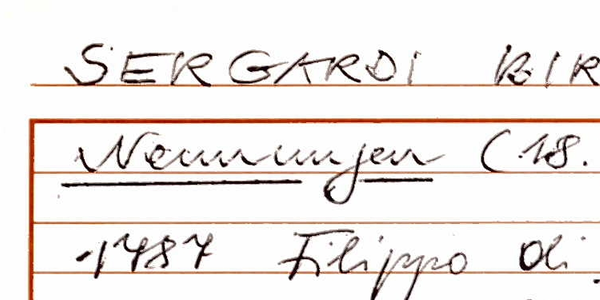 SERGARDI BIR
Nennungen (18.
1787 Filippo di